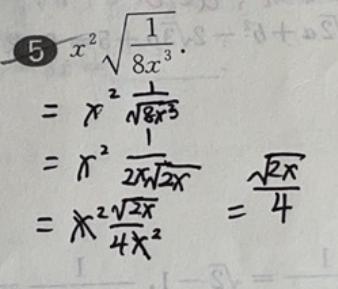 5 x²√(1/(8x³)).
= x² 1/√(8x³)
= x² 1/(2x√(2x))
= x² √(2x)/(4x²) = √(2x)/4